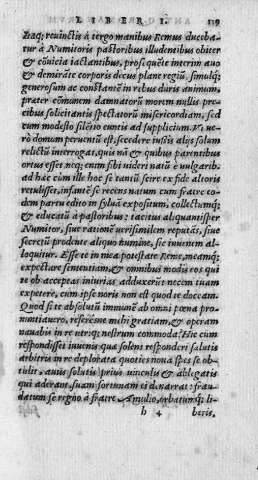 LIBER I. 119
Itaq; reuinctis à tergo manibus Remus ducebatur
tur à Numitoris pastoribus illudentibus obiter
& cōuicia iactantibus, prosequēte interim auo
& demirāte corporis decus planè regiū, simulq;
generosum ac constantē in rebus duris animum,
præter cōmunem damnatorū morem nullis precibus
cibus solicitantis spectatorū misericordiam, sed
cum modesto silētio euntis ad supplicium. Vt uerò
rò domum peruentū est, secedere iussis alijs solum
relictū interrogat, quis nā & quibus parentibus
ortus esset neq; enim sibi uideri natū è uulgarib.
ad hæc cùm ille hoc se tantū scire ex fide altoris
retulisset, infantē se recens natum cum fratre eodem
dem partu edito in siluā expositum, collectumq;
& educatū à pastoribus: tacitus aliquantisper
Numitor, siue ratione uerisimilem reputās, siue
secretū prodente aliquo numine, sic iuuenem alloquitur.
loquitur. Esse te in mea potestate Reme, meamq;
expectare sententiam, & omnibus modis eos qui
te ob acceptas iniurias adduxerūt necem tuam
expetere, cum ipse noris non est quod te doceam.
Quod si te absolutū immunē ab omni pœna pronuntiauero,
nuntiauero, referēsne mihi gratiam, & operam
nauabis in re utriq; nostrum commoda? Hic cum
respondisset iuuenis quæ solent responderi salutis
arbitris in re deplorata quoties noua spes se obtulit,
tulit, auus solutis prius uinculis & ablegatis
qui aderant, suam fortunam ei denarrat: fraudatum
datum se regno à fratre Amulio, orbatumq; liberis,
h 4 beris,